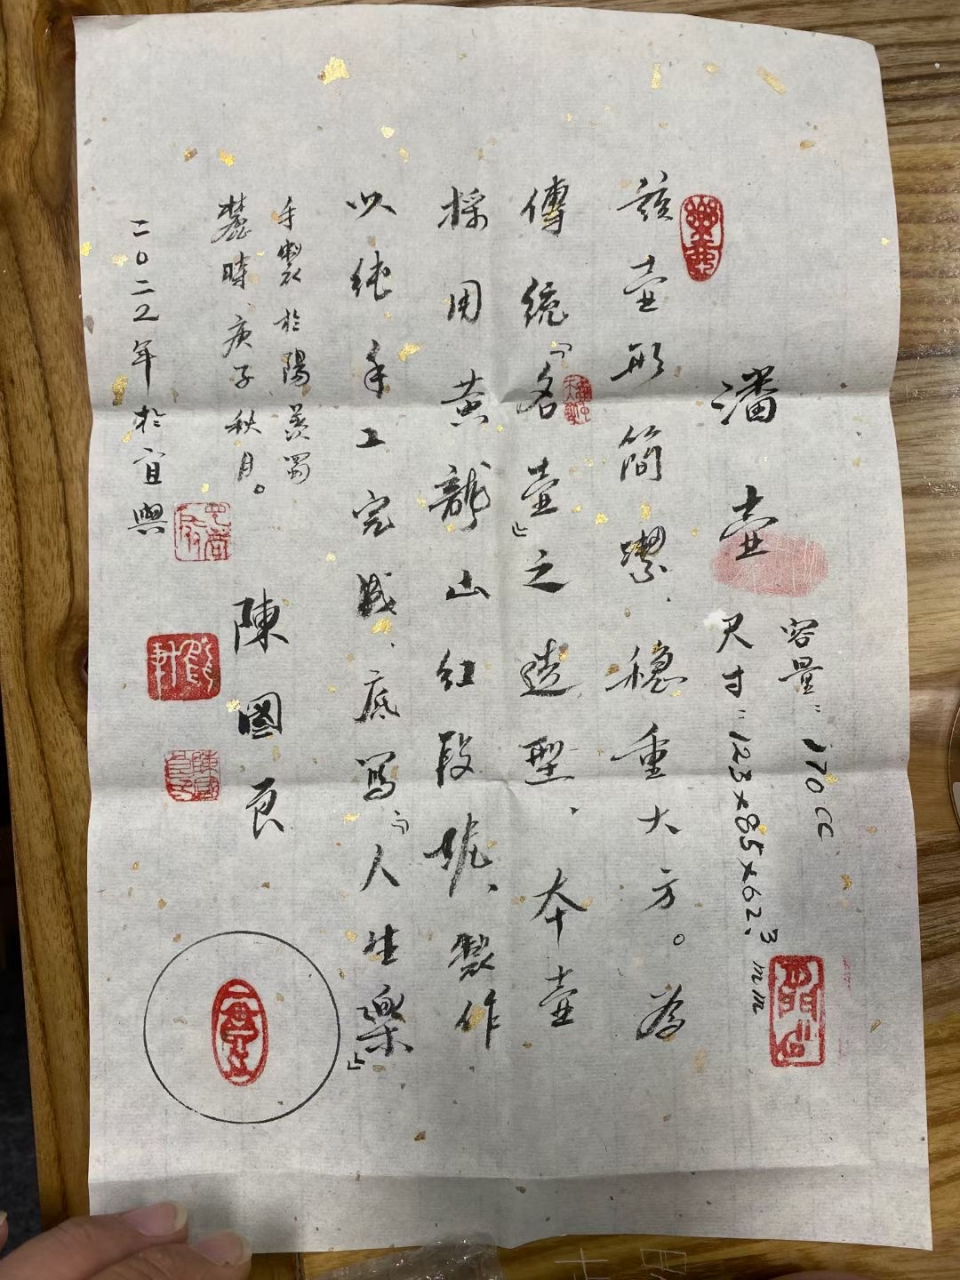 潘壺
容量：170cc
尺寸：123×85×62.3mm
該壺形簡潔、穩重大方。為
傳統「名壺」之造型、本壺
採用黃龍山紅段坭、製作
以純手工完成、底寫「人生樂」
手製於陽羨蜀
麓時、庚子秋月。
陳國良
二〇二二年於宜興